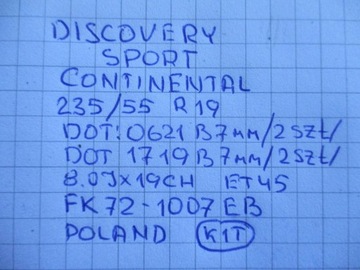 DISCOVERY
SPORT
CONTINENTAL
235/55 R19
DOT: 0621 B7mm/2szt/
DOT 1719 B7mm/2szt/
8.0Jx19CH ET45
FK72-1007EB
POLAND KIT